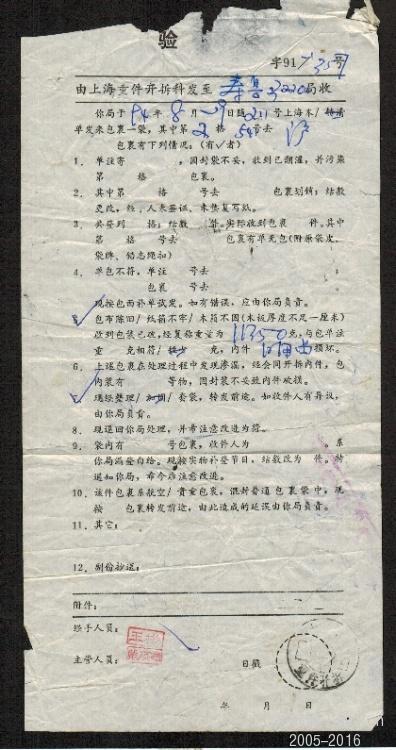 验
字91 7357号
由上海查件开拆科发至 寿县 局收
你局于 94 年 8 月 19 日随 211 号上海本/
单发来包裹一袋，其中第 2 格 54 号去 泸
包裹有下列情况：(有✓者)
1．单注寄 ，因封袋不妥，收到已潮湿，并污染
第 格 包裹。
2．其中第 格 号去 包裹划销；结数
更改，经 人未签证、未赘复写纸。
3．共登列 格；结数 件。实际收到包裹 件。其中
第 格 号去 包裹有单无包（附原袋皮、
袋牌、铅志绳扣）
4．单包不符，单注 号去 ；
包裹 号去 。
现按包面补单试发。如有错误，应由你局负责。
5．包布陈旧/纸箱不牢/木箱不固(木板厚度不足一厘米)
收到包装已破，经复称重量为 11350 克，与包单注
重 克相符/ 克，内件 损坏。
6．上述包裹在处理过程中发现渗漏，经会同开拆内件，包
内装有 等物，因封装不妥致内件破损。
7．现经整理/加捆/套袋，转发前途。如收件人有异议，
由你局负责。
8．现退回你局处理，并希注意改进为荷。
9．袋内有 号包裹，收件人为 。系
你局漏登白给。现按实物补登节目，结数改为 件。特
通知你局，希今后注意改进。
10．该件包裹系航空/贵重包裹，混封普通包裹袋中，现
按 包裹转发前途，由此造成的延误由你局负责。
11．其它：
12．别份抄送：
附件：
经手人员：
主管人员： 日戳
年 月 日
2005-2016